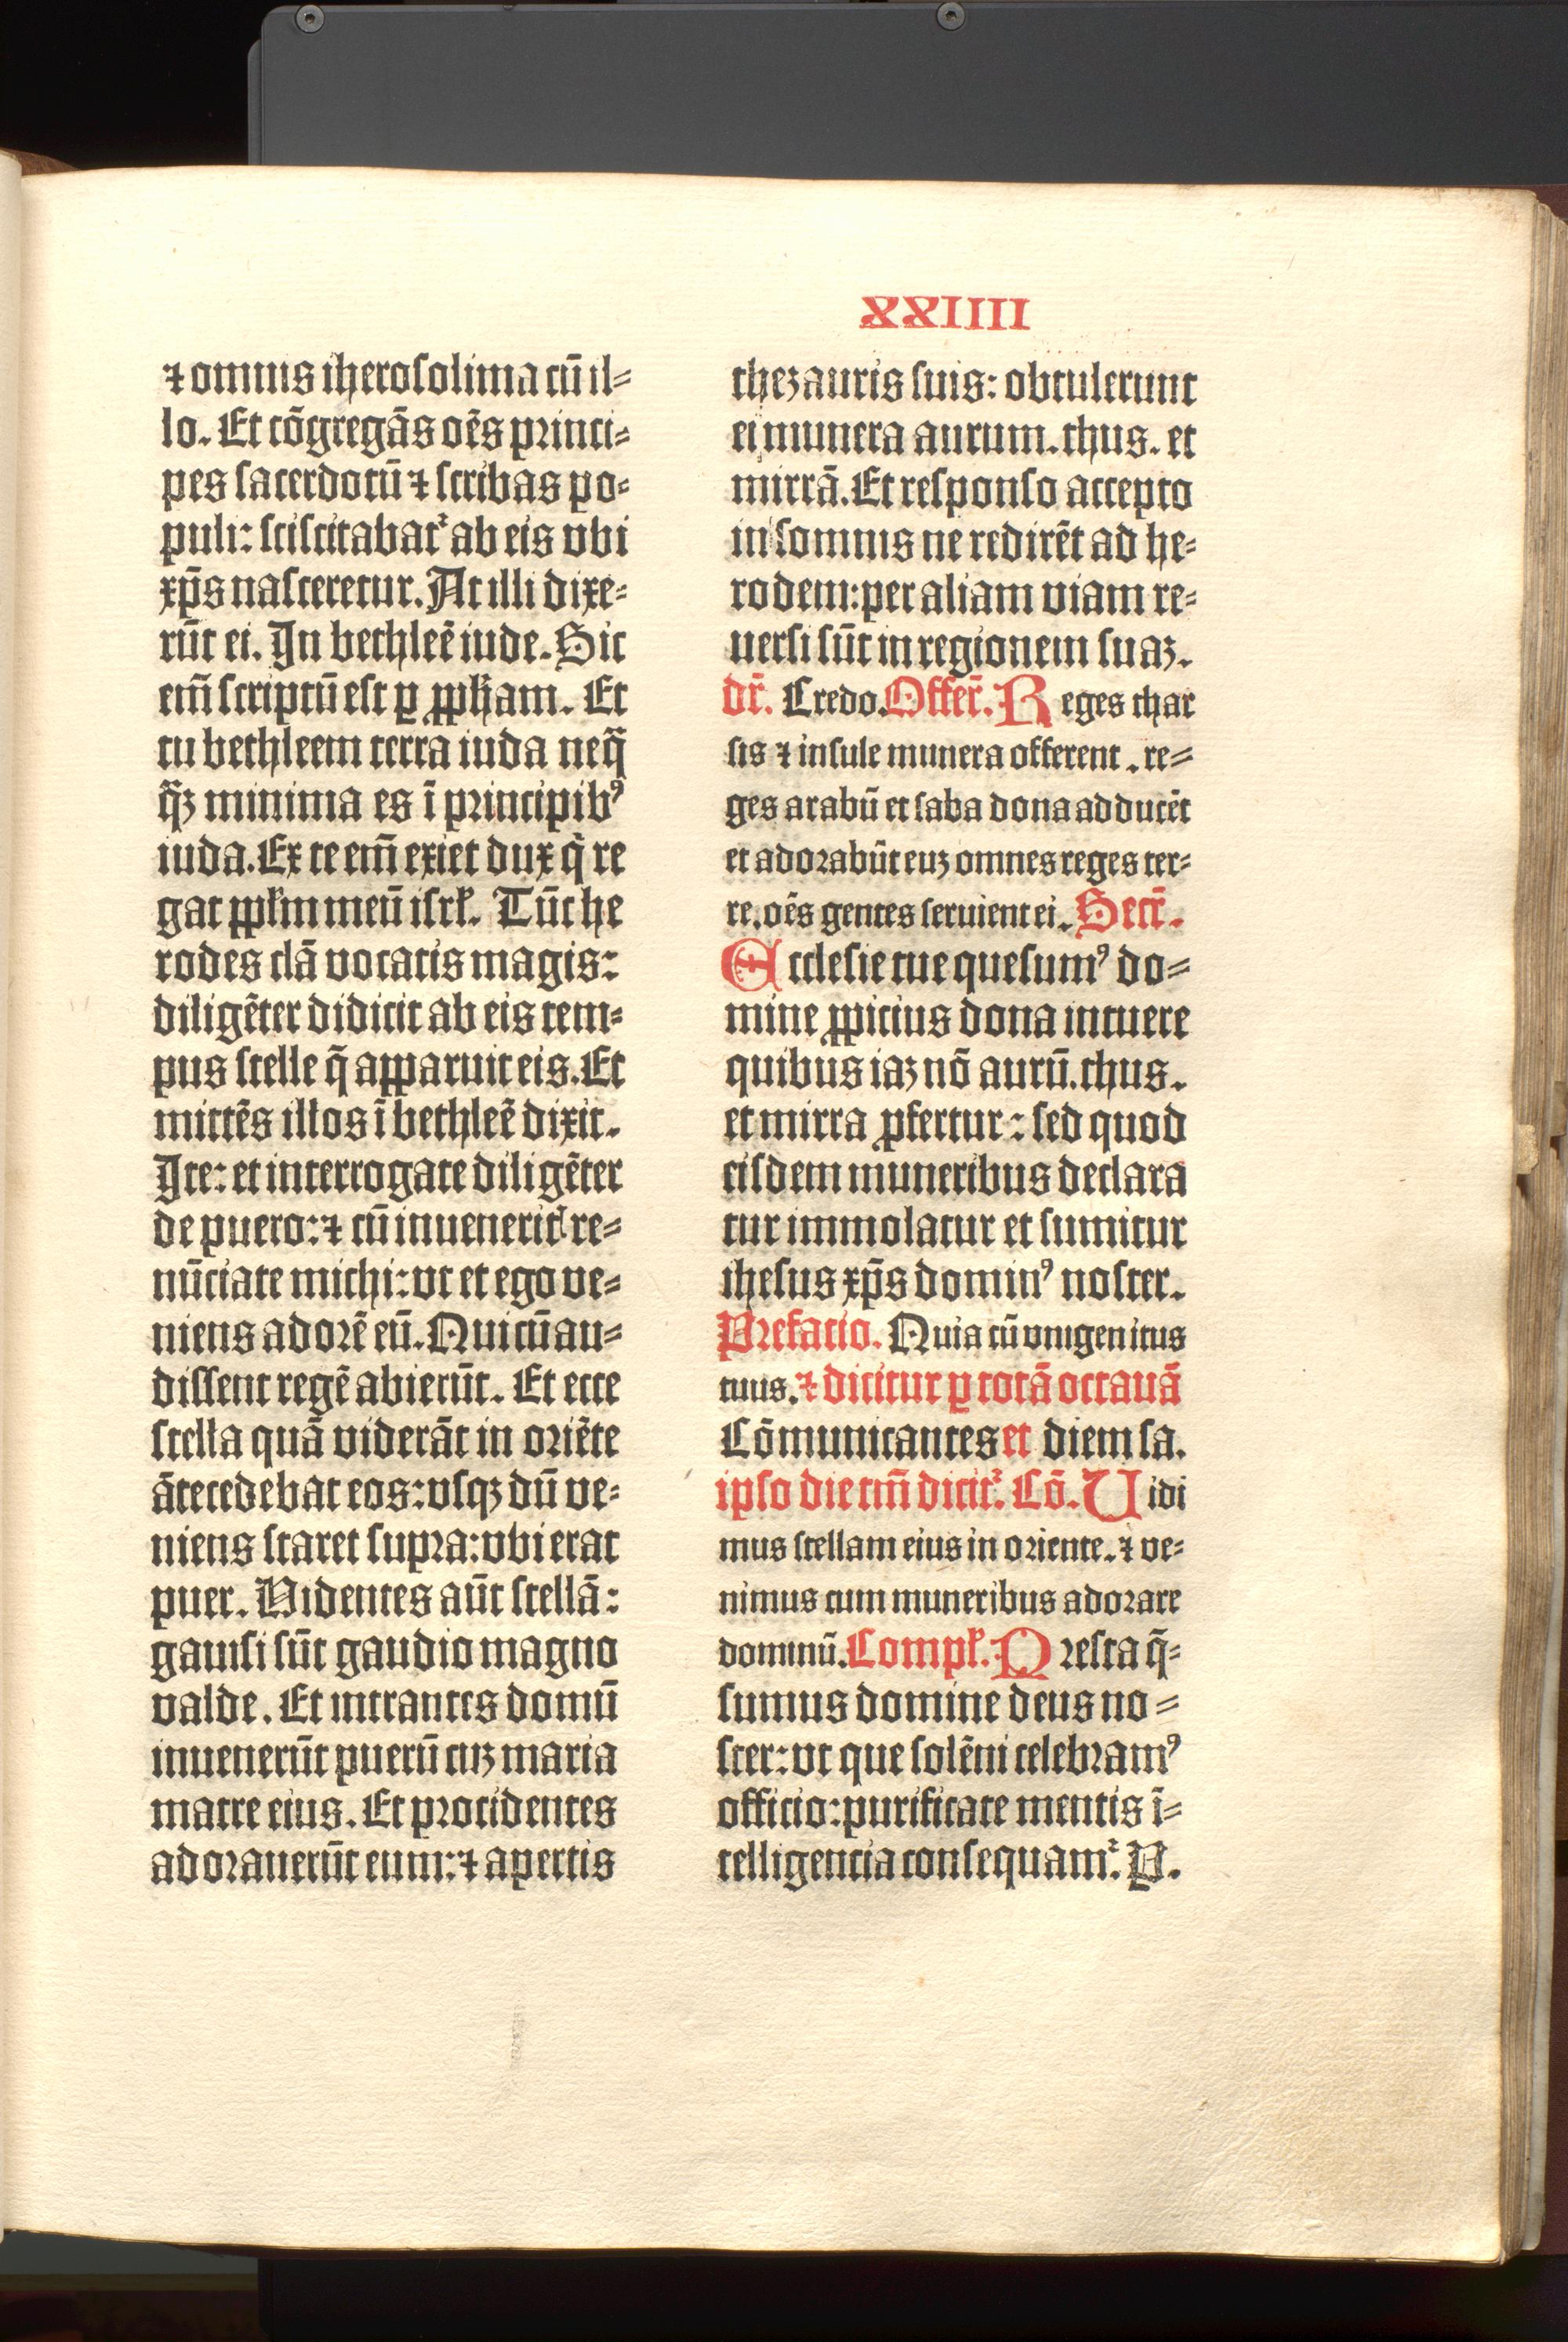 XXIIII
⁊ omnis iherosolima cū il⸗
lo. Et cōgregās oēs princi⸗
pes sacerdotū ⁊ scribas po⸗
puli: sciscitabat᷑ ab eis vbi
xp̄s nasceretur. At illi dixe⸗
rūt ei. In bethleē iude. Sic
em̄ scriptū est ꝑ ꝓph̄am. Et
tu bethleem terra iuda neq̄
q̄ꝫ minima es ī principibꝰ
iuda. Ex te em̄ exiet dux q̇ re
gat ppl̄m meū isrl̄. Tūc he
rodes clā vocatis magis:
diligēter didicit ab eis tem⸗
pus stelle q̄ apparuit eis. Et
mittēs illos ī bethleē dixit.
Ite: et interrogate diligēter
de puero: ⁊ cū inueneritꝭ re⸗
nūciate michi: vt et ego ve⸗
niens adorē eū. Qui cū au⸗
dissent regē abierūt. Et ecce
stella quā viderāt in oriēte
ātecedebat eos: vsqꝫ dū ve⸗
niens staret supra: vbi erat
puer. Videntes aūt stellā:
gauisi sūt gaudio magno
valde. Et intrantes domū
inuenerūt puerū cuꝫ maria
matre eius. Et procidentes
adorauerūt eum: ⁊ apertis
thezauris suis: obtulerunt
ei munera aurum. thus. et
mirrā. Et responso accepto
in somnis ne redirēt ad he⸗
rodem: per aliam viam re⸗
uersi sūt in regionem suaꝫ.
dr̄. Credo. Offer̄. Reges thar
sis ⁊ insule munera offerent. re⸗
ges arabū et saba dona adducēt
et adorabūt euꝫ omnes reges ter⸗
re. oēs gentes seruient ei. Secr̄.
Ecclesie tue quesumꝰ do⸗
mine ꝓpicius dona intuere
quibus iaꝫ nō aurū. thus.
et mirra ꝓfertur: sed quod
eisdem muneribus declara
tur immolatur et sumitur
ihesus xp̄s dominꝰ noster.
Prefatio. Quia cū vnigenitus
tuus. ⁊ dicitur ꝑ totā octauā
Cōmunicantes et diem sa.
ipso die tm̄ dicit᷑. Cō. Vidi
mus stellam eius in oriente. ⁊ ve⸗
nimus cum muneribus adorare
dominū. Compl̄. Presta q̄⸗
sumus domine deus no⸗
ster: vt que solēni celebramꝰ
officio: purificate mentis ī⸗
telligencia consequam᷑. P.